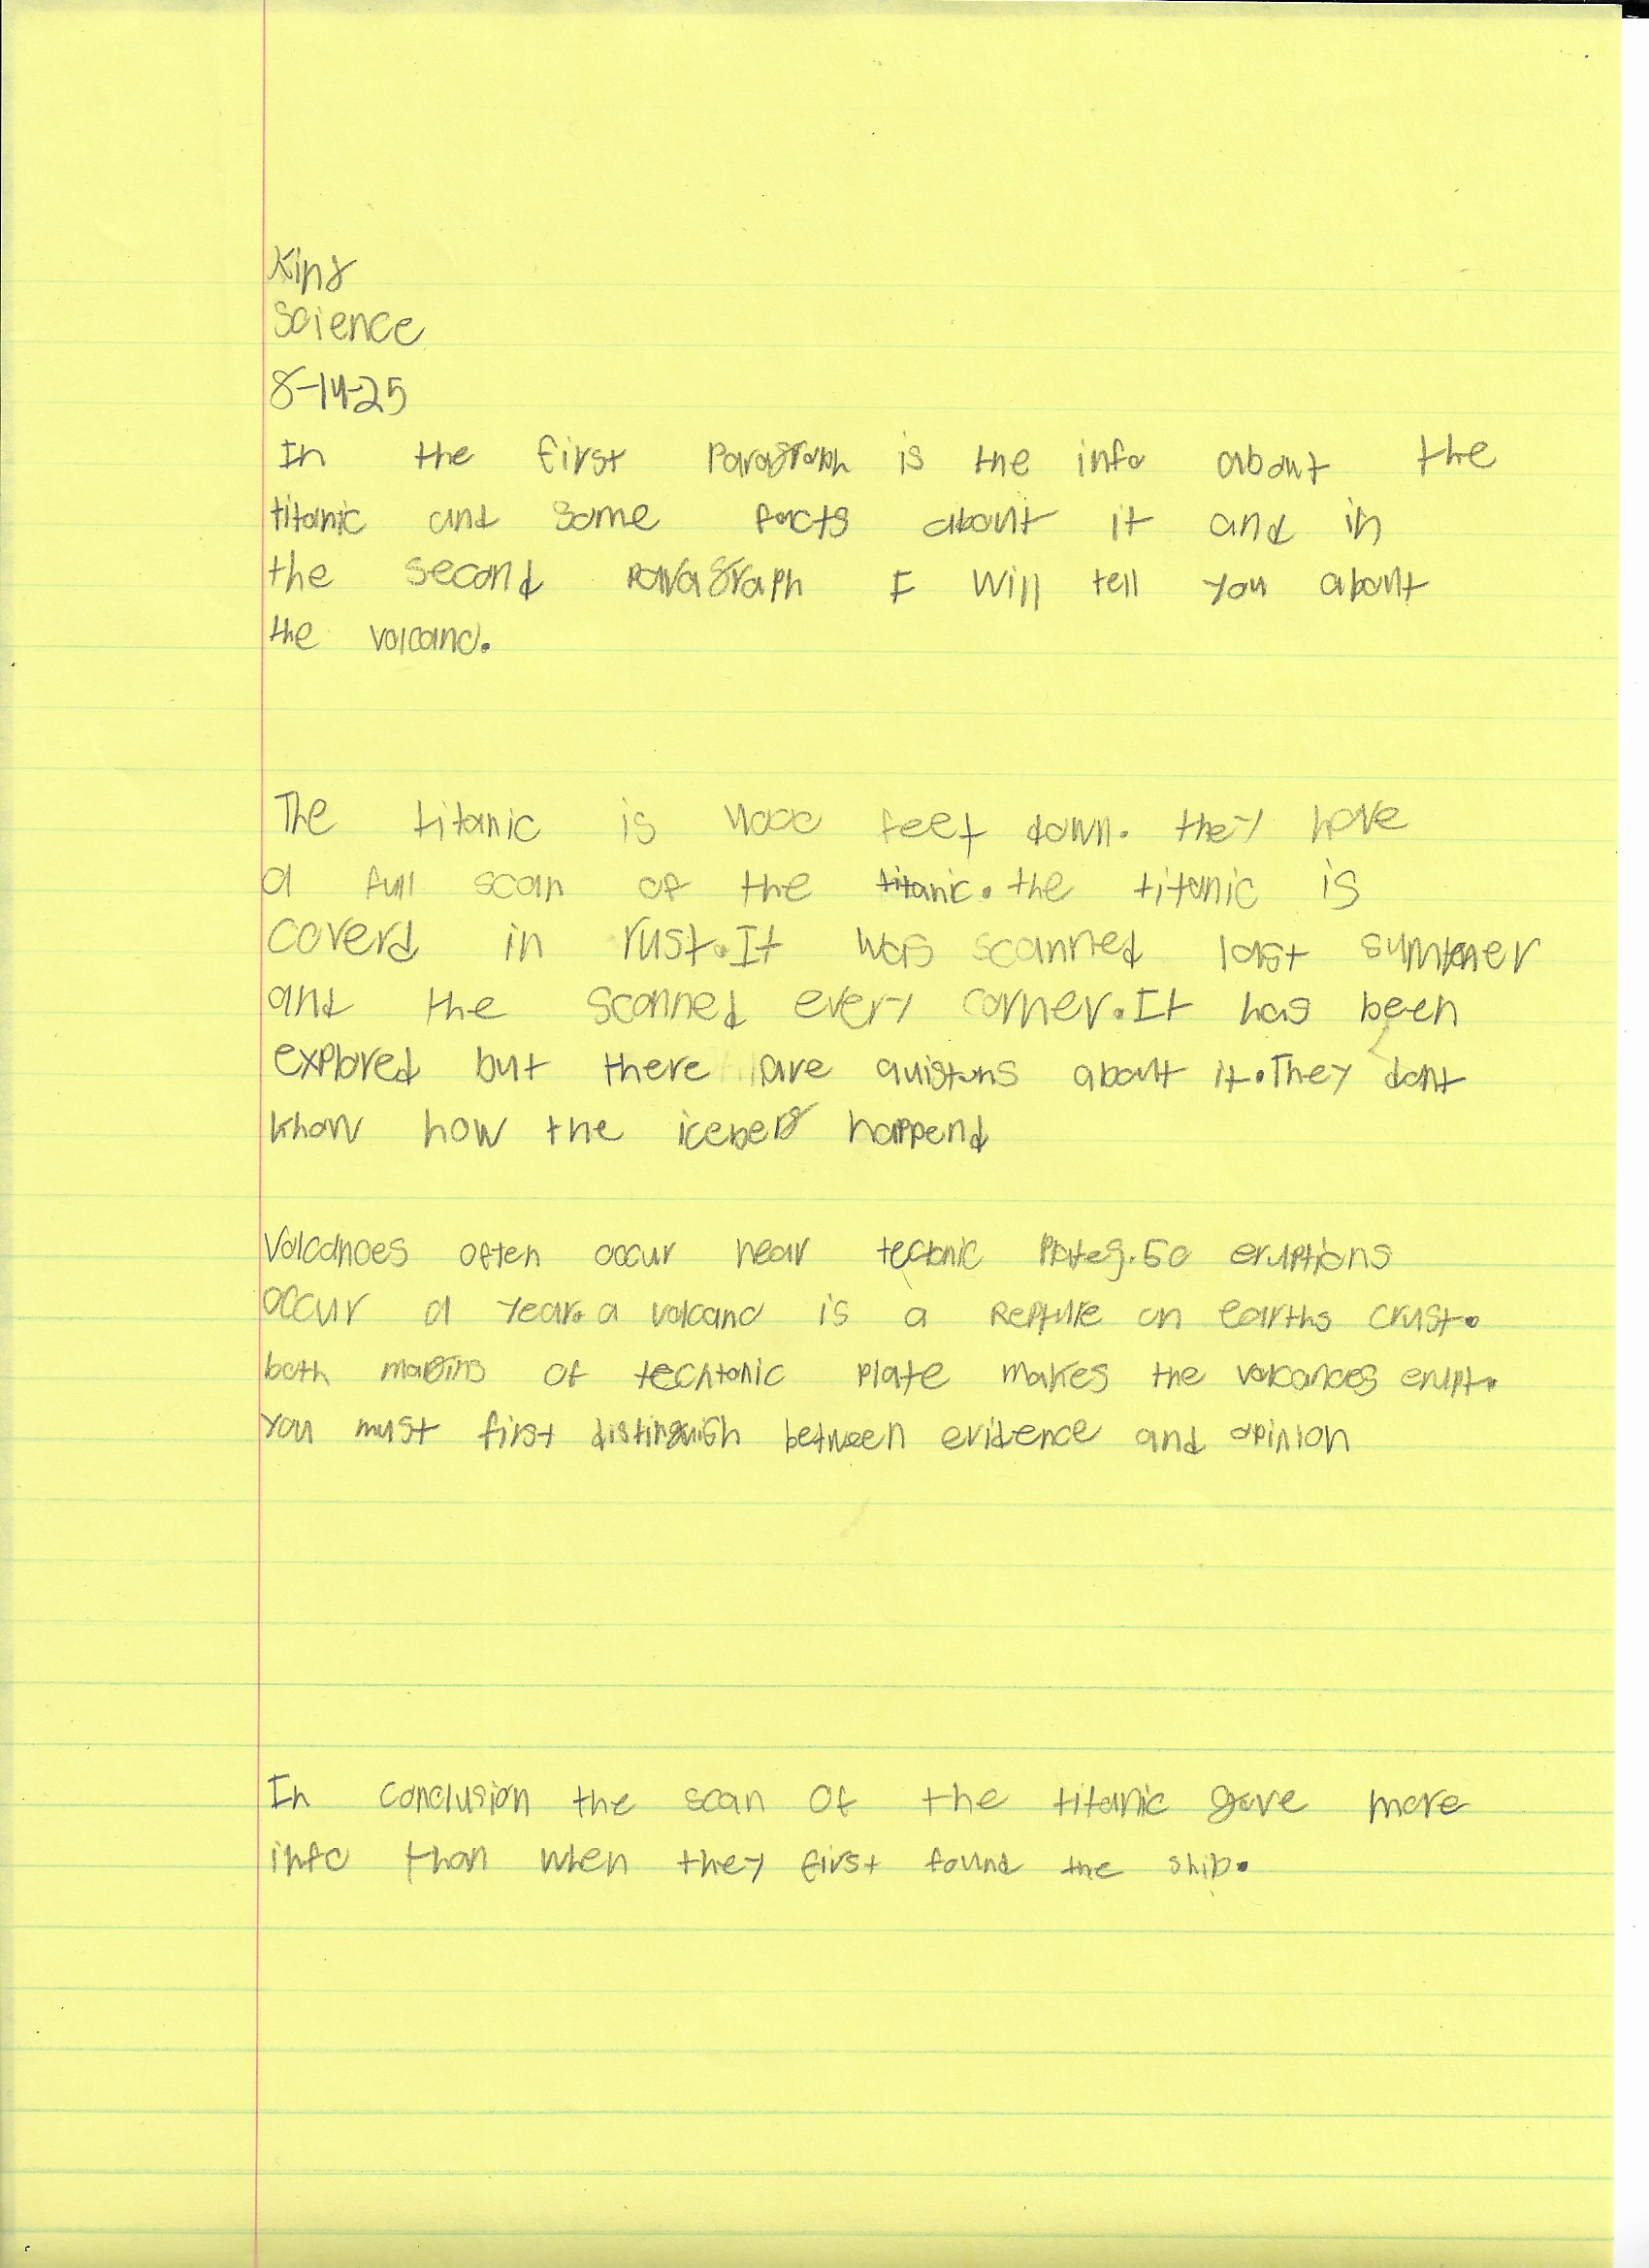 King
Science
8-14-25
In the first Paragraph is the info about the
titanic and some facts about it and in
the second Paragraph I will tell you about
the volcano.
The titanic is 4000 feet down. they have
a full scan of the titanic. the titanic is
coverd in rust. It was scanned last summer
and the scanned every corner. It has been
explored but there are quistons about it. They dont
know how the iceberg happend
Volcanoes often occur near tectonic Plates. 50 eruptions
occur a year. a volcano is a Repture on earths crust.
both margins of techtonic plate makes the volcanoes erupt.
you must first distinguish between evidence and opinion
In conclusion the scan of the titanic gave more
info than when they first found the ship.